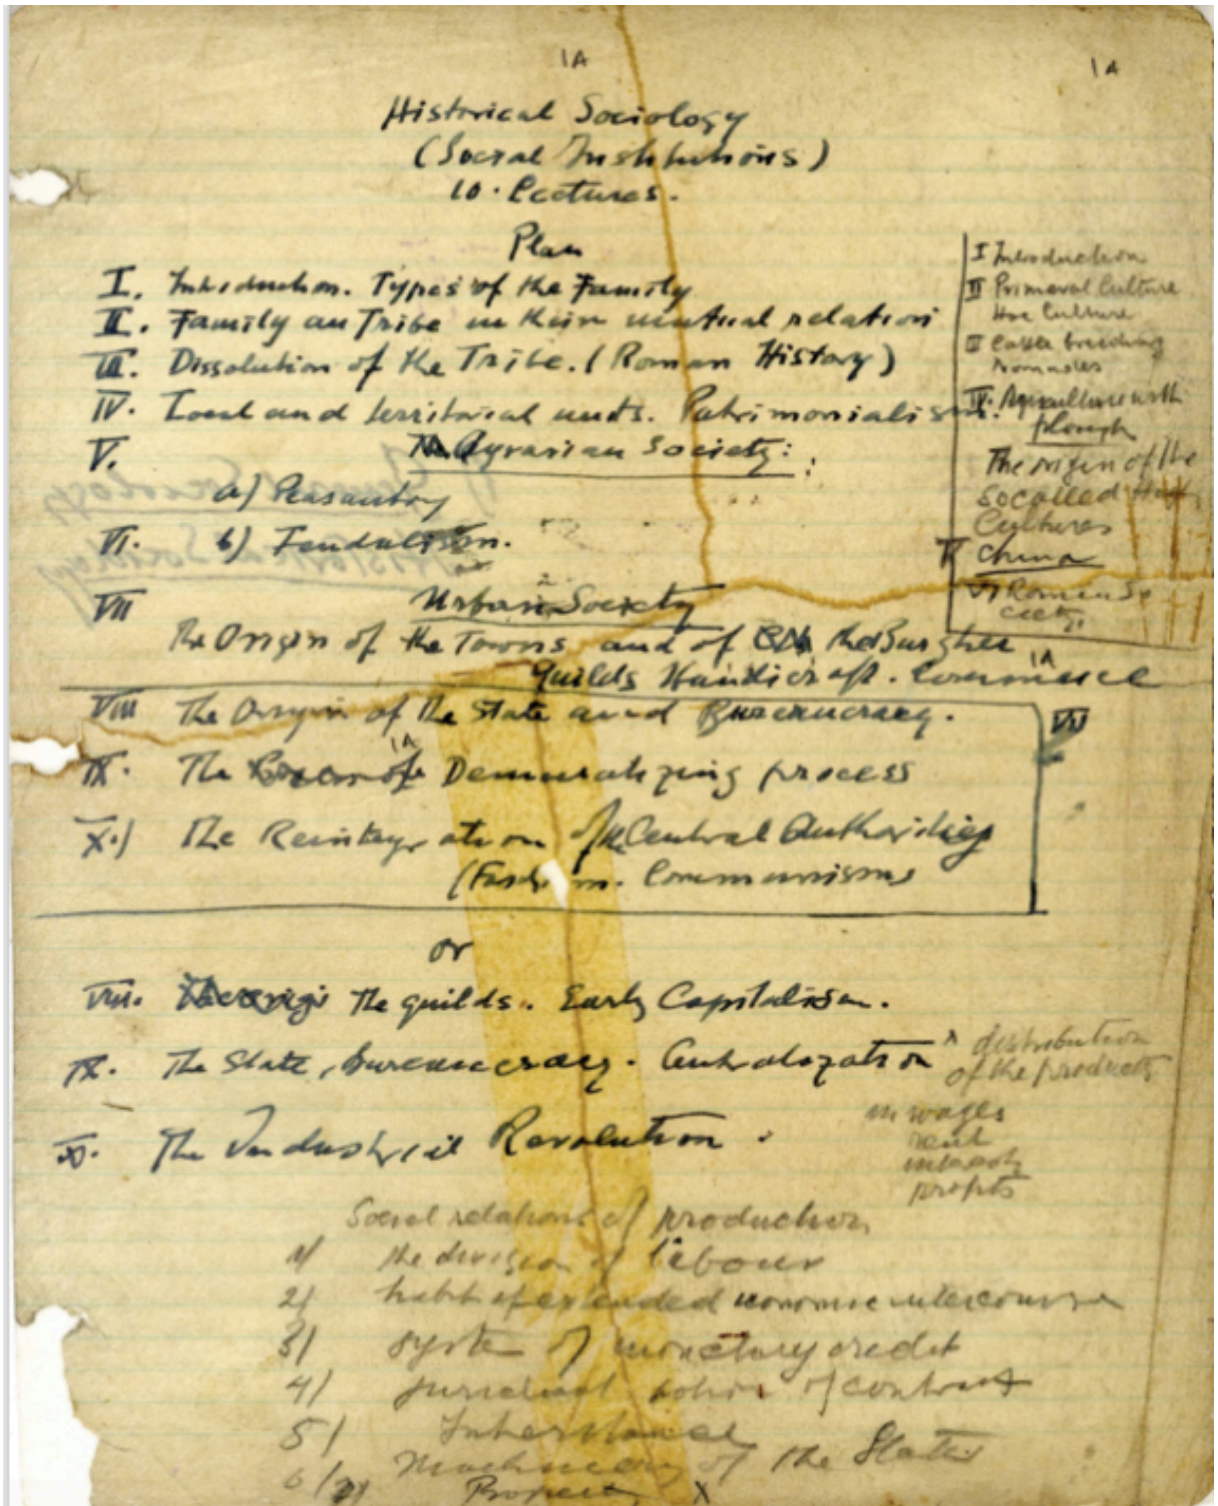 1A
1A
Historical Sociology
(Social Institutions)
10. Lectures.
Plan
I. Introduction. Types of the Family
II. Family an Tribe in their mutual relation
III. Dissolution of the Tribe. (Roman History)
IV. Local and territorial units. Patrimonialism.
V. Agrarian Society:
a) Peasantry
VI. b) Feudalism.
VII Urban Society
The Origin of the Towns and of the Burgher
Guilds Handicraft. Commerce
1A
VIII The Origin of the State and Bureaucracy.
1A
IX. The Democratizing process
X.) The Reintegration of the Central Authorities
( Communism
VII
or
VIII. The guilds. Early Capitalism.
IX. The State, bureaucracy. Centralization
X. The Industrial Revolution.
x distribution
of the products
in wages
rent
interest
profits
Social relations of production
1/ the division of labour
2/ habit of extended economic intercourse
3/ system of monetary credit
4/ juridical notion of contract
5/ Inheritance
6/ Machinery of the State
7/ Property X
I Introduction
II Primeval Culture
Hoe Culture
III Cattle breeding
Nomades
IV. Agriculture with
plough
The origin of the
so called High
Cultures
V China
VI Roman So
ciety